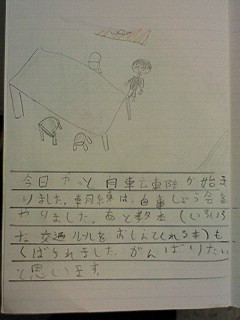 今日やっと自車が始ま
りました。練は、自しょう会を
やりました。あと教本(いろいろ
な交通ルールをおしえてくれる本)も
くばられました。がんばりたい
と思います。